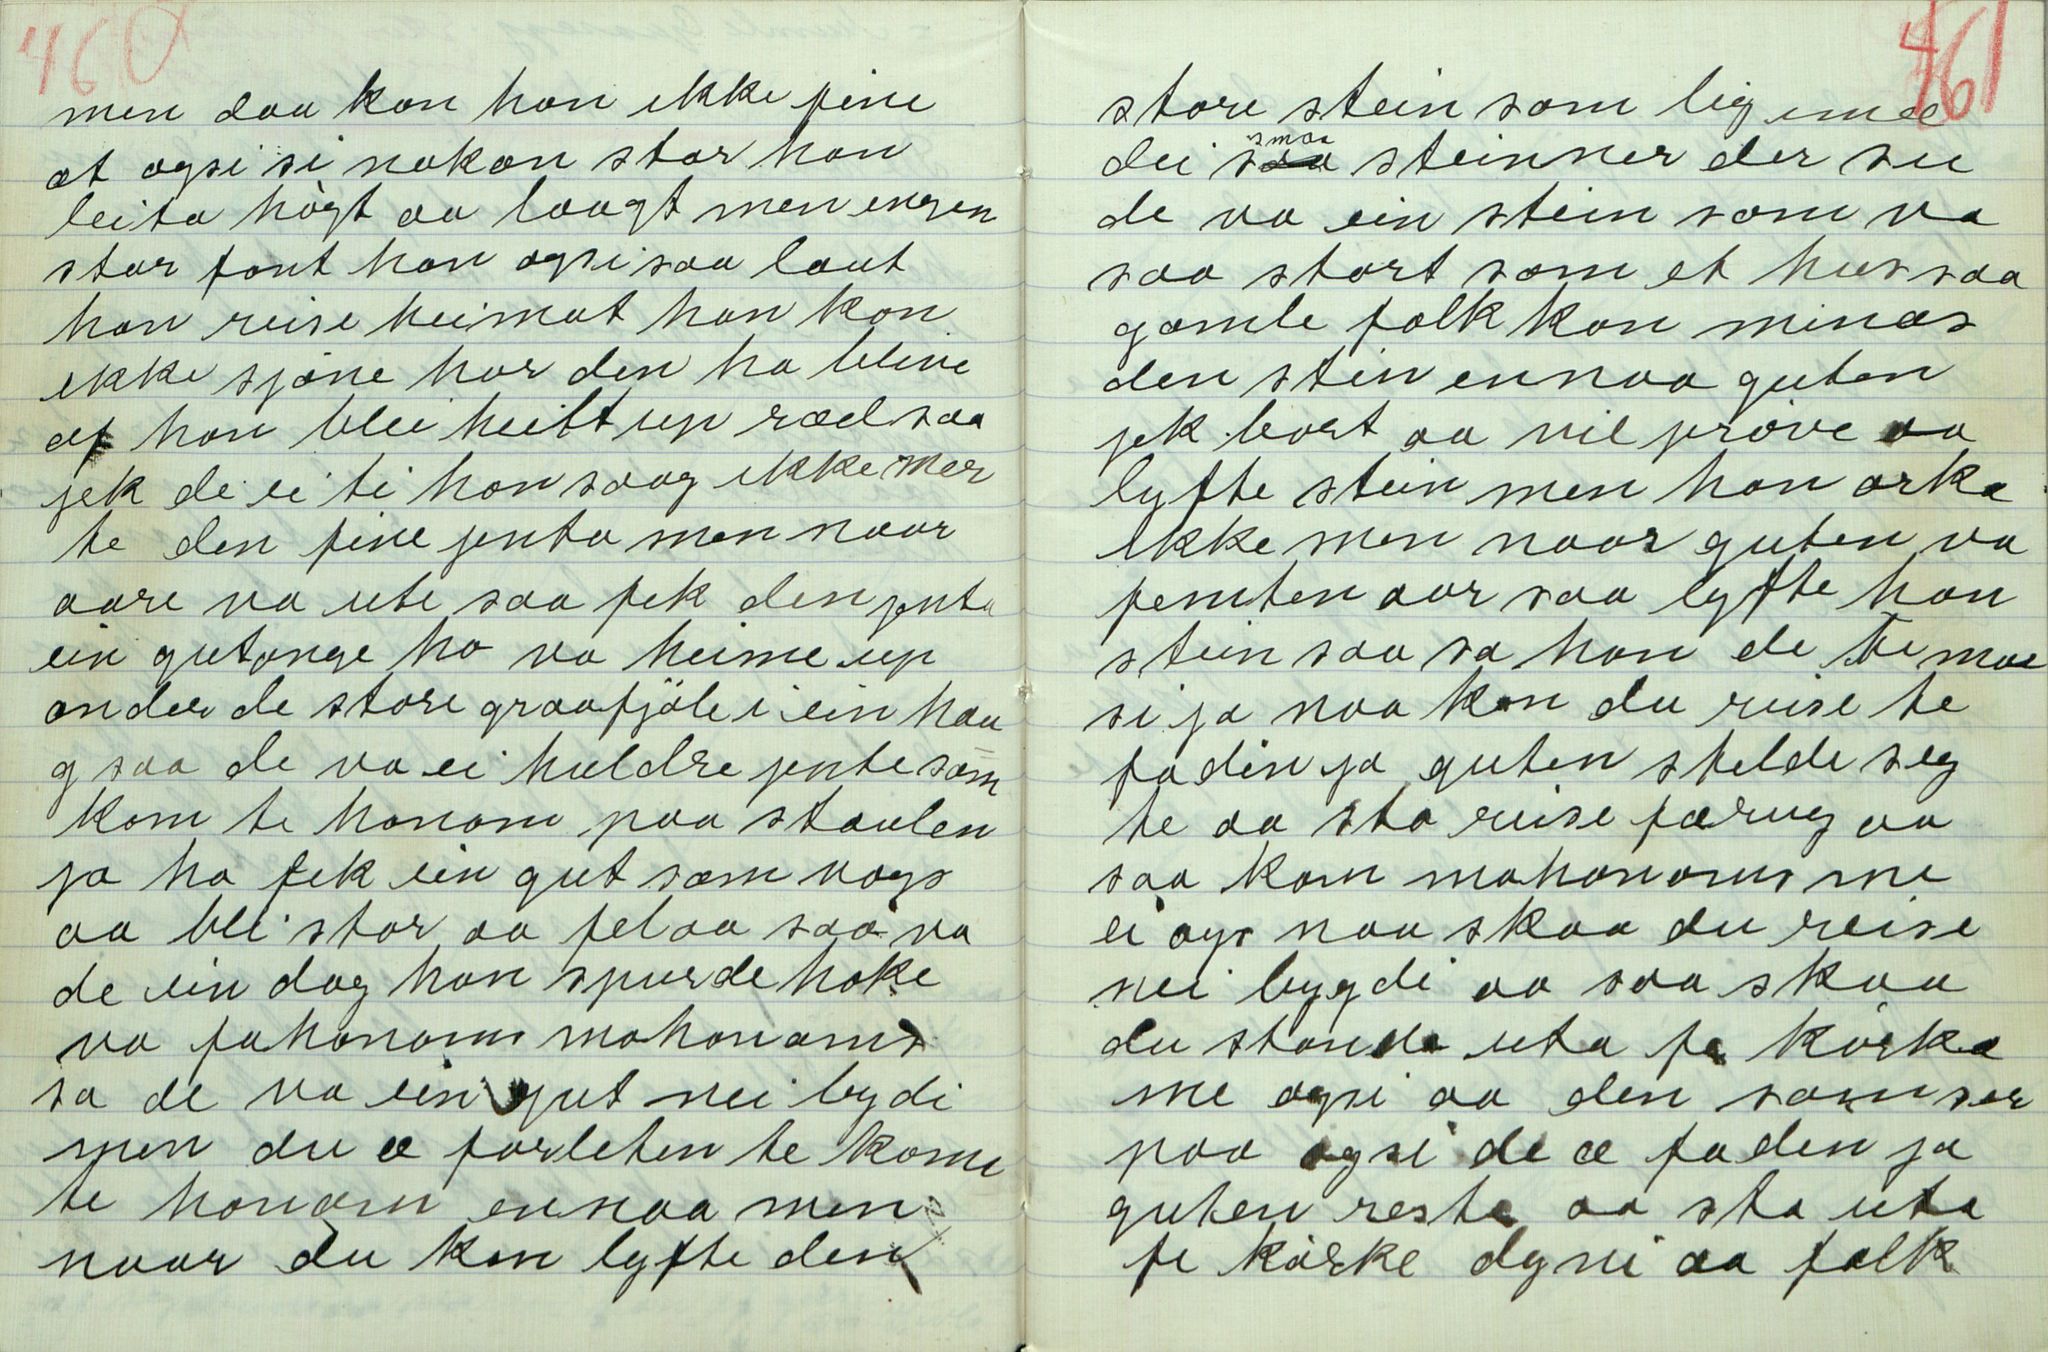 460
men daa kan han ikke fine
at ögsi si nokon star han
leita högt aa laagt men engen
star fant han ögsi saa laut
han reise heimat han kan
ikke sjöne hor den ha blive
af han blei heilt up ræd saa
jek de ei ti han saag ikke mer
te den fine jenta men naar
aare va ute saa fek den jenta
ein gutonge ho va heime up
onder de store graafjöle i ein hau
g saa de va ei huldre jente som
kom te honom paa staulen
ja ho fek ein gut som vogs
aa blei stor aa fel aa saa va
de ein dag han spurde hoke
va fahonoms mahonoms
sa de va ein gut nei bygdi
men du æ forleten te kome
te honom ennaa men
naar du kan lyfte den
461
store stein som lig imæ
dei smaa steinner der su
de va ein stein som va
saa stort som et hus saa
gamle folk kan minas
den stein ennaa guten
jek bort aa vil pröve aa
lyfte stein men han orka
ikke men naar guten va
femten aar saa lyfte han
stein saa sa han de te mor
si ja naa kan du reise te
fadin ja guten stelde seg
te aa sta reise færug aa
saa kom mahonoms me
ei ögs naa skaa du reise
nei bygdi aa saa skaa
du stande uta fe körka
me ögsi aa den som ser
paa ögsi de æ faden ja
guten reste aa sta uta
fe körke dyni aa folk